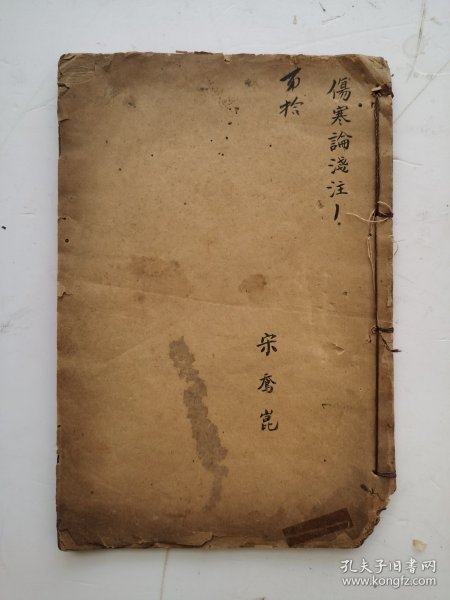 傷寒論淺注
宋喬崑
孔夫子旧书网
www.kongfz.com